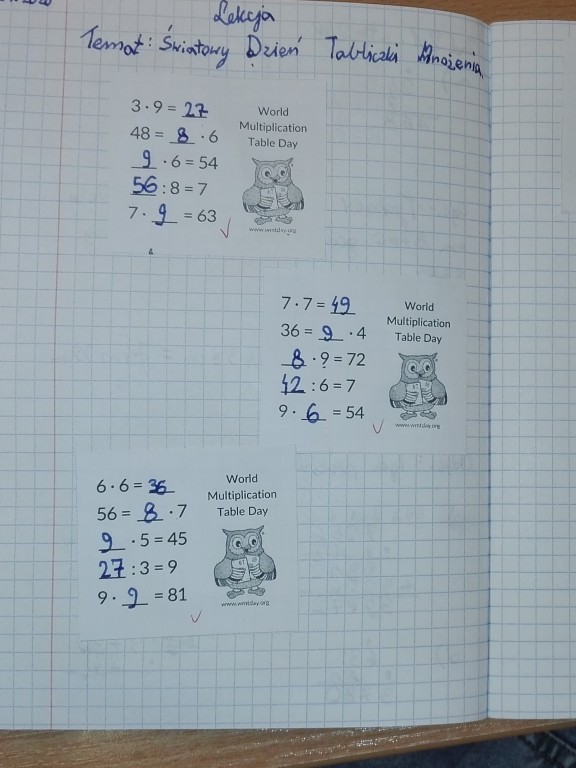 Lekcja
Temat: Światowy Dzień Tabliczki Mnożenia
3 · 9 = 27
48 = 8 · 6
9 · 6 = 54
56 : 8 = 7
7 · 9 = 63
World
Multiplication
Table Day
www.wmtday.org
7 · 7 = 49
36 = 9 · 4
8 · 9 = 72
42 : 6 = 7
9 · 6 = 54
World
Multiplication
Table Day
www.wmtday.org
6 · 6 = 36
56 = 8 · 7
9 · 5 = 45
27 : 3 = 9
9 · 9 = 81
World
Multiplication
Table Day
www.wmtday.org